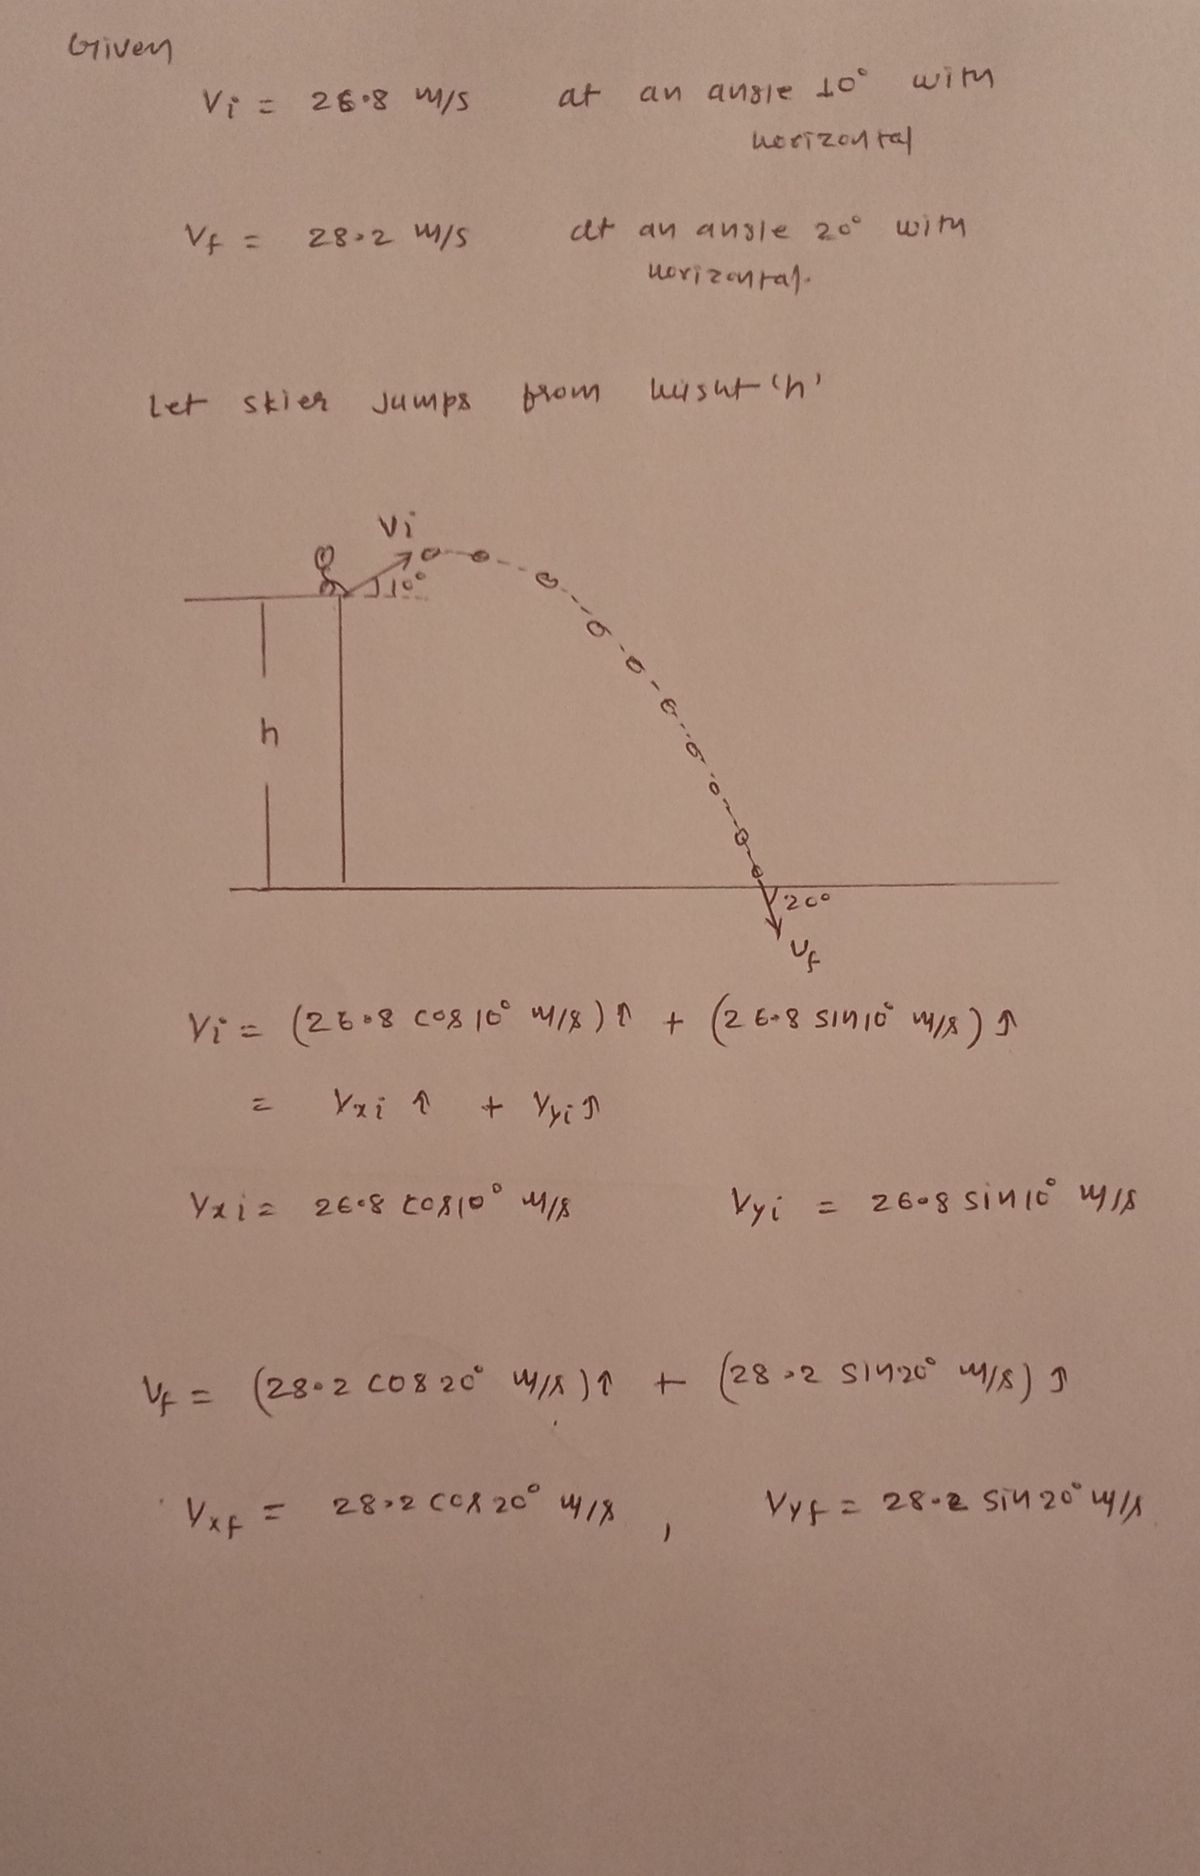 Given
Vi = 26.8 m/s at an angle 10° with
horizontal
Vf = 28.2 m/s at an angle 20° with
horizontal.
Let skier jumps from height 'h'
Vi
10°
h
20°
Vf
Vi = (26.8 cos 10° m/s) î + (26.8 sin 10° m/s) ĵ
= Vxi î + Vyi ĵ
Vxi = 26.8 cos 10° m/s Vyi = 26.8 sin 10° m/s
Vf = (28.2 cos 20° m/s) î + (28.2 sin 20° m/s) ĵ
Vxf = 28.2 cos 20° m/s , Vyf = 28.2 sin 20° m/s